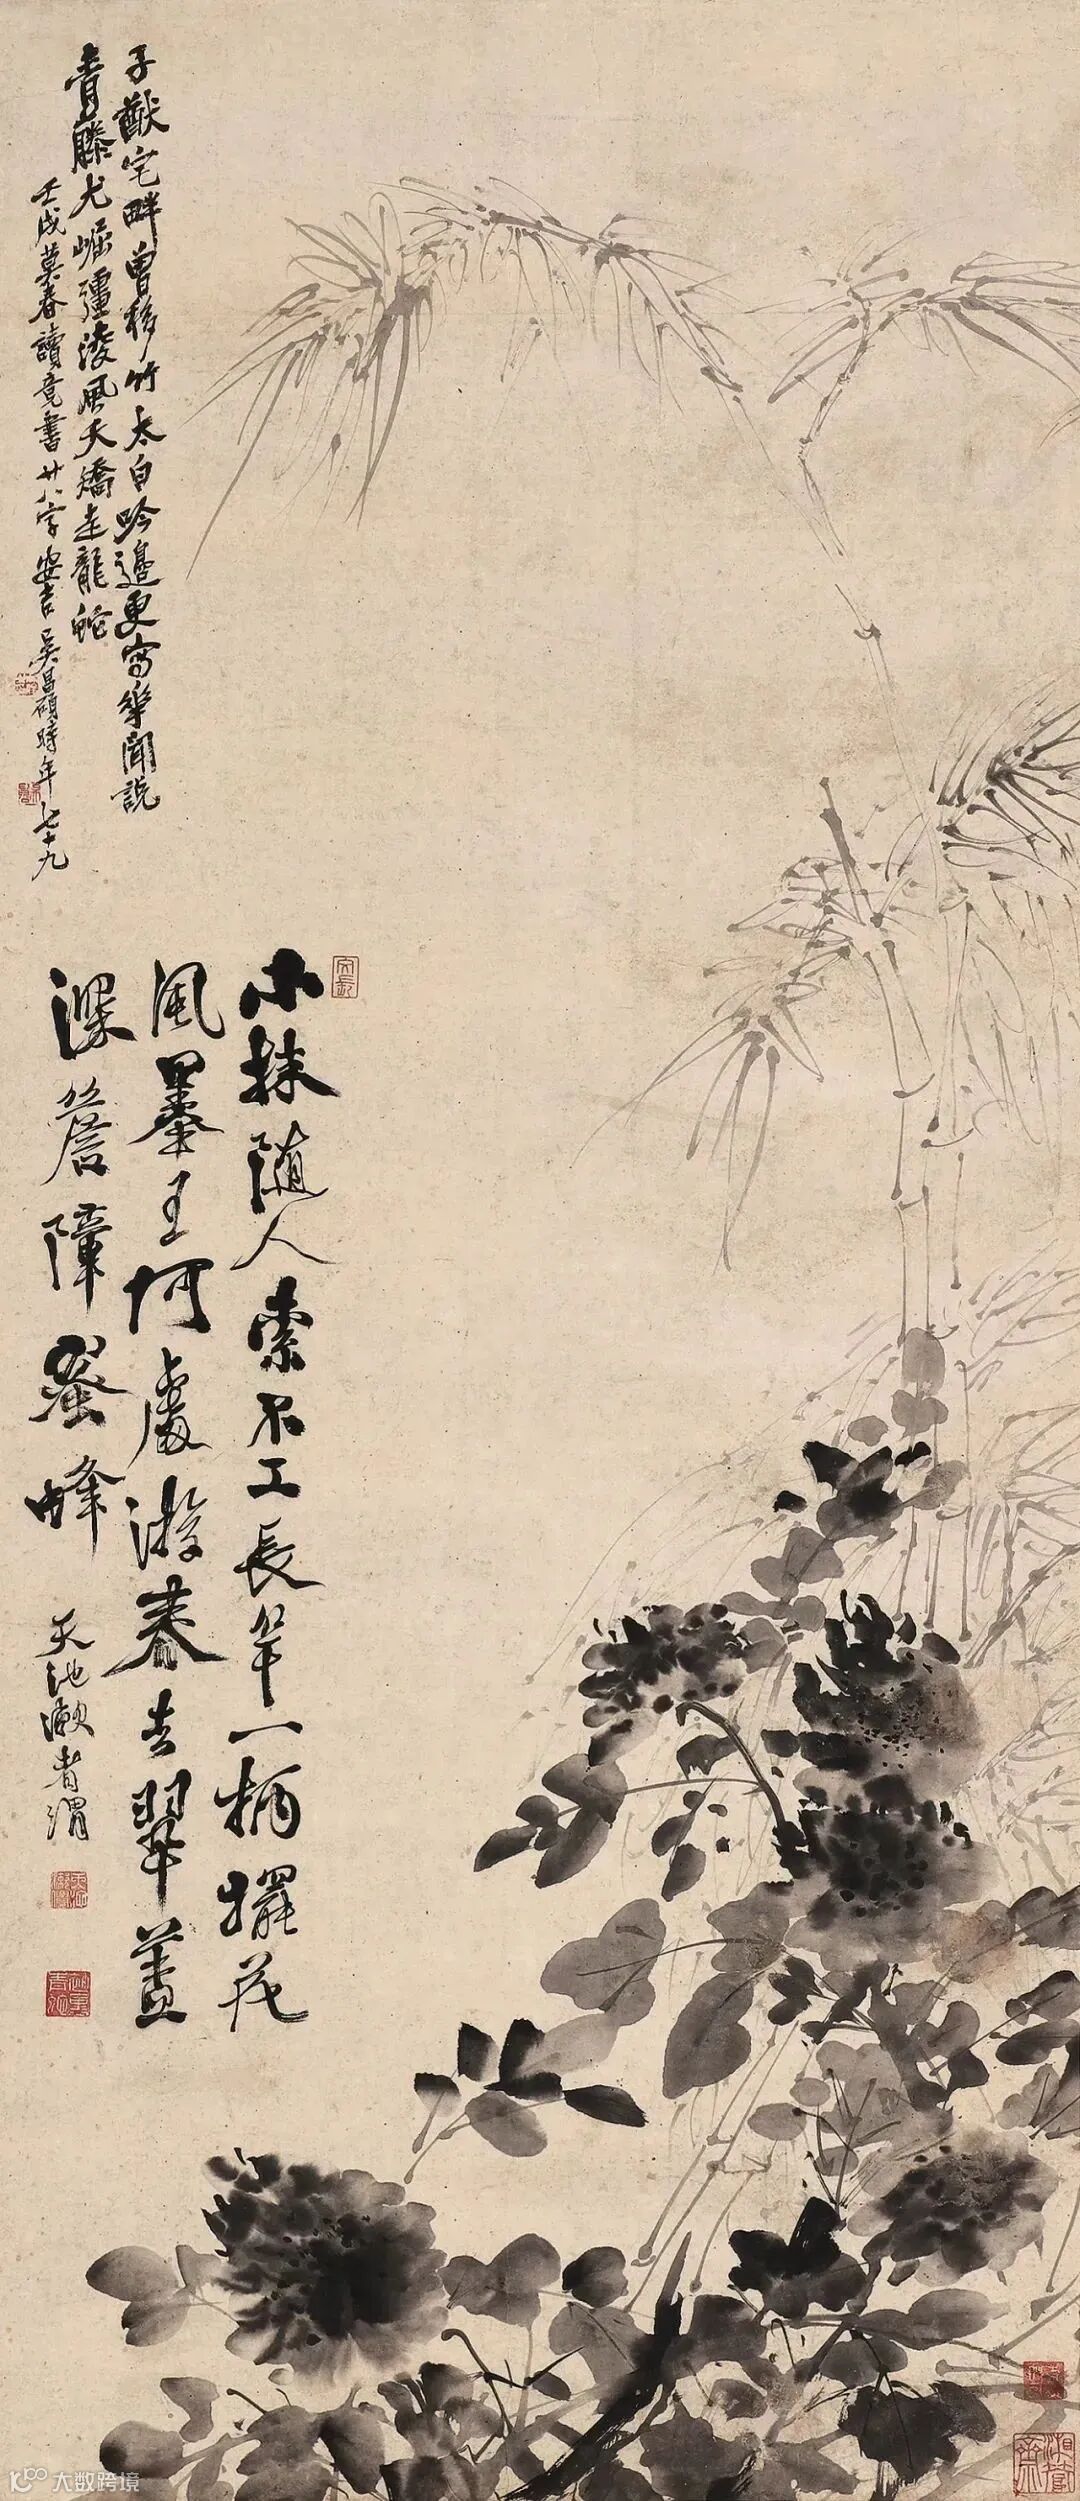 子猷宅畔曾移竹太白吟邊更寫華聞說
青藤尤崛彊淩風夭矯走龍蛇
壬戌莫春讀竟書廿八字安吉吳昌碩時年七十九
小抹隨人索不工長竿一柄擺花
風墨王何處游春去翠蓋
深簷障蜜蜂
天池漱者渭
文長
湘管齋
大数跨境